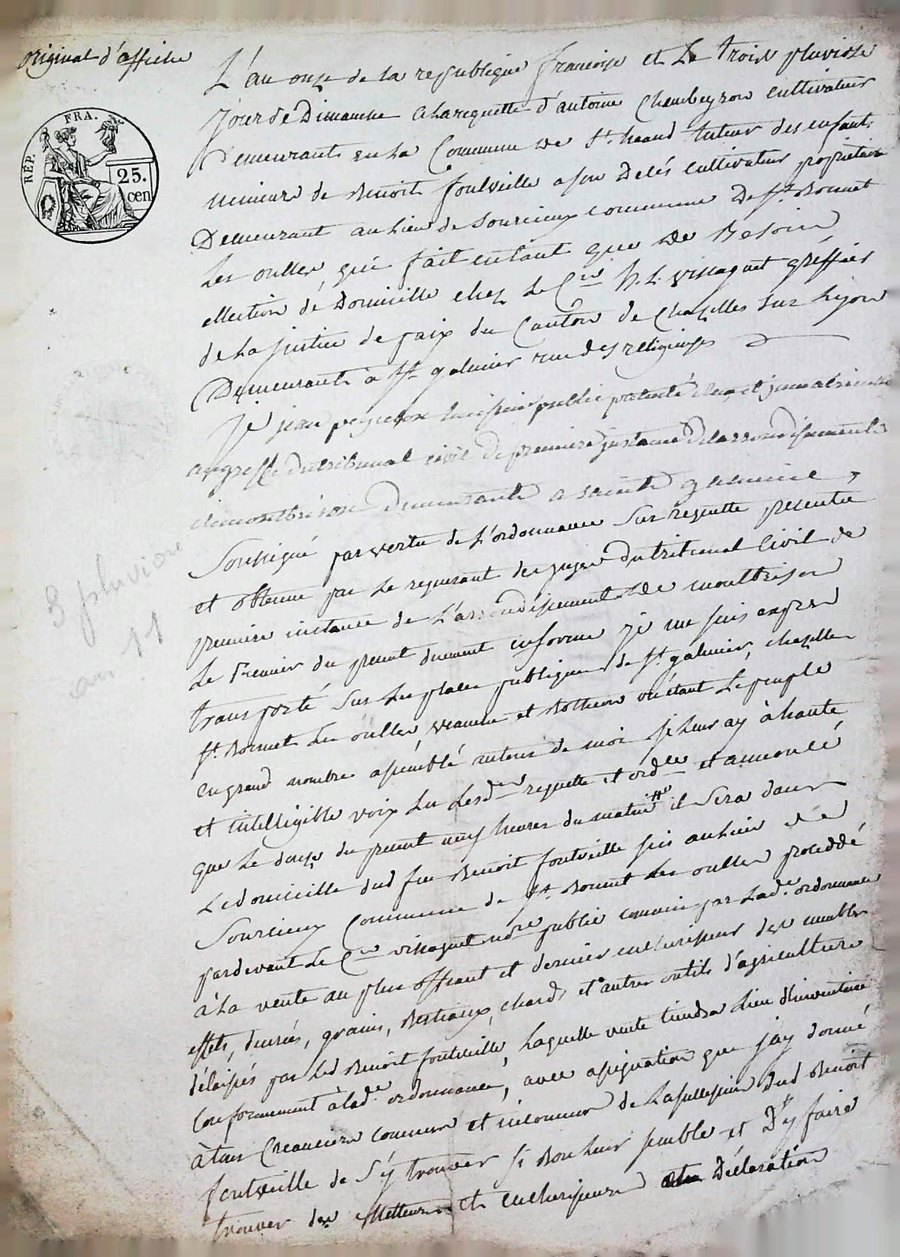 original d'affiche
RÉP. FRA.
25.
cen
L'an onze de la republique francoise et Le trois pluviose
jour de Dimanche a la requette d'antoine Chambeyron cultivateur
Demeurant en La Commune De St. heand tuteur des enfants
mineur de Benoit fontveille a son Decés cultivateur propriétaire
Demeurant au lieu de Sourcieux commune De St. Bonnet
Les oulles, qui fait entant que De Besoin
ellection de Domicille chez Le Cen vissaguet greffier
de La justice de paix du Canton de Chazelles sur Lyon
Demeurant à St. galmier rue des religieuses
Je jean huissier public patenté et immatriculé
au greffe du tribunal civil de premiere instance de l'arrondissement de
montbrison demeurant a sainte galmier
Soussigné par vertu de L'ordonnance sur requette présentée
et obtenue par Le requerant des juges du tribunal Civil de
premiere instance de L'arrondissement de montbrison
Le Premier du present dument en forme je me suis exprès
transporté sur Les places publiques de St. galmier, chazelles
St. Bonnet Les oulles, veauche et ou étant Le peuple
en grand nombre assemblé autour de moi je Leur ay à haute
et intelligible voix Lu Lesd. requette et ordce et annoncé
que Le douze du present neuf heures du matin il sera dans
Le domicille dud feu Benoit fontveille sis au Lieu de
Sourcieux Commune de St. Bonnet Les oulles procedé
pardevant Le Cen vissaguet nore public commis par Lade ordonnance
à La vente au plus offrant et dernier encherisseur des meubles
effets, denrées, grains, Bestiaux, chards et autres outils d'agriculture
délaissés par Led Benoit fontveille, Laquelle vente tiendra Lieu d'inventaire
Conformement à Lade ordonnance, avec assignation que j'ay donné
à tous Creanciers connus et inconnus de La succession dud Benoit
fontveille de s'y trouver si Bon Leur semble et D'y faire
trouver des metteurs et encherisseurs Déclaration
3 pluviose
an 11